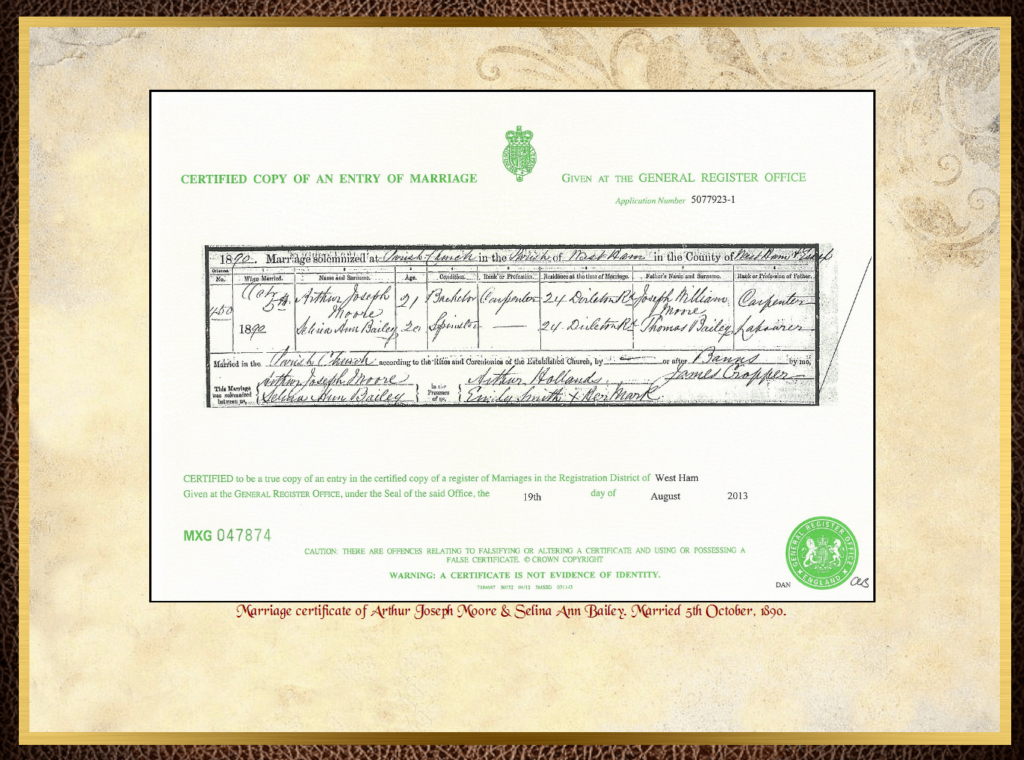 CERTIFIED COPY OF AN ENTRY OF MARRIAGE
GIVEN AT THE GENERAL REGISTER OFFICE
Application Number 5077923-1
1890. Marriage solemnized at Parish Church in the Parish of West Ham in the County of West Ham & Essex
No. When Married. Name and Surname. Age. Condition. Rank or Profession. Residence at the time of Marriage. Father's Name and Surname. Rank or Profession of Father.
450 Octr 5th 1890
Arthur Joseph Moore 21 Bachelor Carpenter 24 Dirleton Rd Joseph William Moore Carpenter
Selina Ann Bailey 20 Spinster — 24 Dirleton Rd Thomas Bailey Labourer
Married in the Parish Church according to the Rites and Ceremonies of the Established Church, by — or after Banns by me,
James Cropper
This Marriage was solemnized between us, Arthur Joseph Moore
Selina Ann Bailey
in the Presence of us, Arthur Hollands
Emily Smith X Mark
CERTIFIED to be a true copy of an entry in the certified copy of a register of Marriages in the Registration District of West Ham
Given at the GENERAL REGISTER OFFICE, under the Seal of the said Office, the 19th day of August 2013
MXG 047874
CAUTION: THERE ARE OFFENCES RELATING TO FALSIFYING OR ALTERING A CERTIFICATE AND USING OR POSSESSING A
FALSE CERTIFICATE. © CROWN COPYRIGHT
WARNING: A CERTIFICATE IS NOT EVIDENCE OF IDENTITY.
GENERAL REGISTER OFFICE
ENGLAND
DAN
Marriage certificate of Arthur Joseph Moore & Selina Ann Bailey. Married 5th October, 1890.